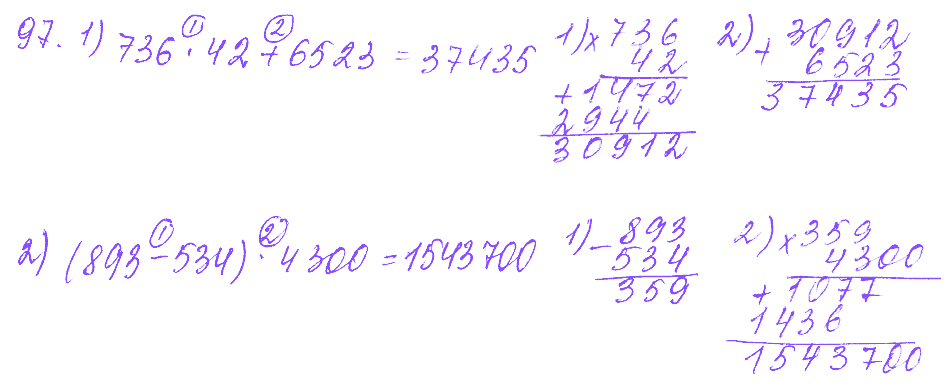 97. 1) 736 · 42 + 6523 = 37435
① ②
1) × 736
42
+ 1472
2944
30912
2) + 30912
6523
37435
2) (893 − 534) · 4300 = 1543700
① ②
1) − 893
534
359
2) × 359
4300
+ 1077
1436
1543700